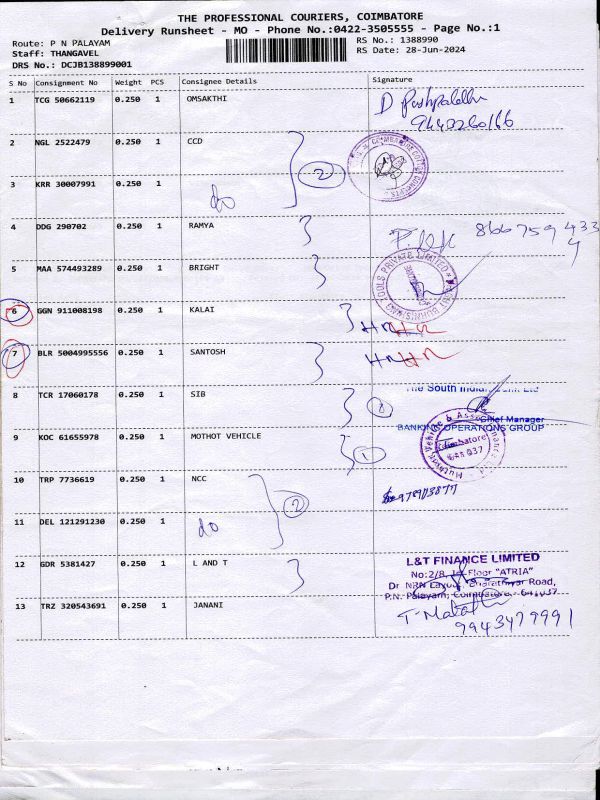 THE PROFESSIONAL COURIERS, COIMBATORE
Delivery Runsheet - MO - Phone No.:0422-3505555 - Page No.:1
Route: P N PALAYAM
RS No.: 1388990
Staff: THANGAVEL
RS Date: 28-Jun-2024
DRS No.: DCJB138899001
S No Consignment No Weight PCS Consignee Details Signature
1 TCG 50662119 0.250 1 OMSAKTHI
2 NGL 2522479 0.250 1 CCD 2
3 KRR 30007991 0.250 1 do
4 DDG 290702 0.250 1 RAMYA 8667594334
5 MAA 574493289 0.250 1 BRIGHT
6 GGN 911008198 0.250 1 KALAI
7 BLR 5004995556 0.250 1 SANTOSH
8 TCR 17060178 0.250 1 SIB
The South Indian Bank Ltd
Chief Manager
BANKING OPERATIONS GROUP
9 KOC 61655978 0.250 1 MOTHOT VEHICLE 1
10 TRP 7736619 0.250 1 NCC 2
11 DEL 121291230 0.250 1 do
12 GDR 5381427 0.250 1 L AND T
L&T FINANCE LIMITED
No:2/8, Ist Floor "ATRIA"
Dr NRN Layout, Bharathiyar Road,
P.N. Palayam, Coimbatore - 641037
13 TRZ 320543691 0.250 1 JANANI
9943479991